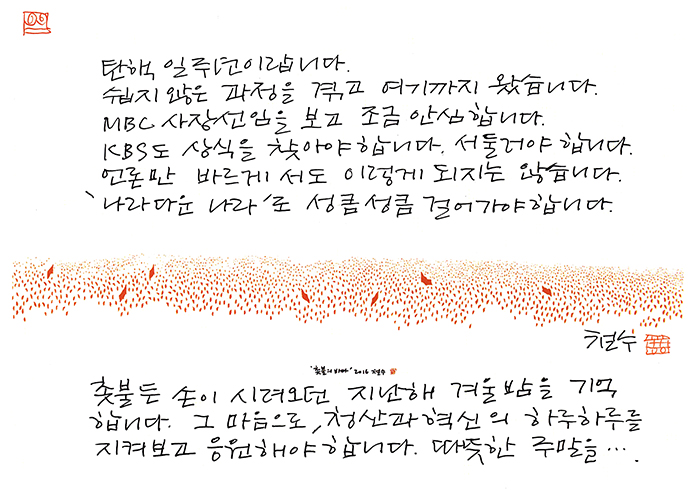 탄핵 일주년이랍니다.
쉽지 않은 과정을 겪고 여기까지 왔습니다.
MBC 사장선임을 보고 조금 안심합니다.
KBS도 상식을 찾아야합니다. 서둘러야 합니다.
언론만 바르게 서도 이렇게 되지는 않습니다.
'나라다운 나라'로 성큼성큼 걸어가야합니다.
철수
'촛불의 바다' 2016 철수
촛불 든 손이 시려오던 지난해 겨울밤을 기억
합니다. 그 마음으로, 청산과 혁신의 하루하루를
지켜보고 응원해야합니다. 따뜻한 주말을…